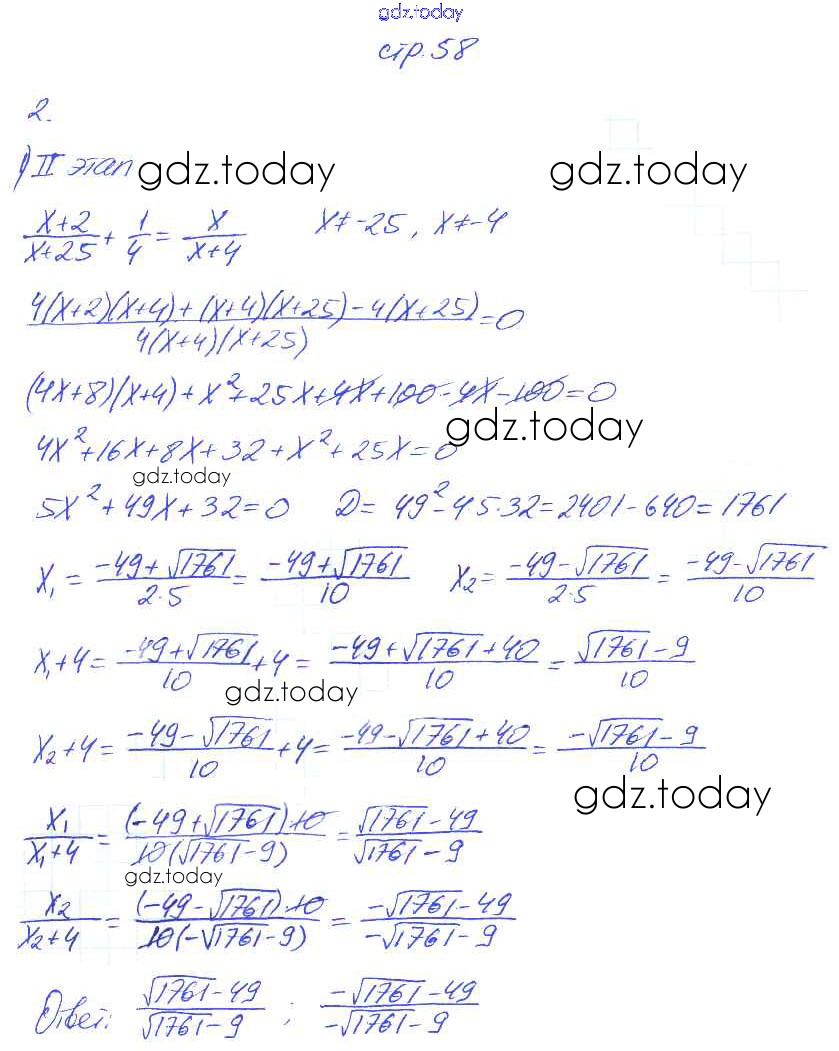 gdz.today
стр. 58
2.
1) II этап gdz.today gdz.today
(x+2)/(x+25) + 1/4 = x/(x+4)   x≠-25, x≠-4
(4(x+2)(x+4)+(x+4)(x+25)-4(x+25))/(4(x+4)(x+25)) = 0
(4x+8)(x+4)+x²+25x+4x+100-4x-100=0
gdz.today
4x²+16x+8x+32+x²+25x=0
gdz.today
5x²+49x+32=0   D= 49²-45·32=2401-640=1761
x₁ = (-49+√1761)/(2·5) = (-49+√1761)/10   x₂ = (-49-√1761)/(2·5) = (-49-√1761)/10
x₁+4 = (-49+√1761)/10 + 4 = (-49+√1761+40)/10 = (√1761-9)/10
gdz.today
x₂+4 = (-49-√1761)/10 + 4 = (-49-√1761+40)/10 = (-√1761-9)/10
gdz.today
x₁/(x₁+4) = ((-49+√1761)10)/(10(√1761-9)) = (√1761-49)/(√1761-9)
gdz.today
x₂/(x₂+4) = ((-49-√1761)10)/(10(-√1761-9)) = (-√1761-49)/(-√1761-9)
Ответ: (√1761-49)/(√1761-9) ; (-√1761-49)/(-√1761-9)